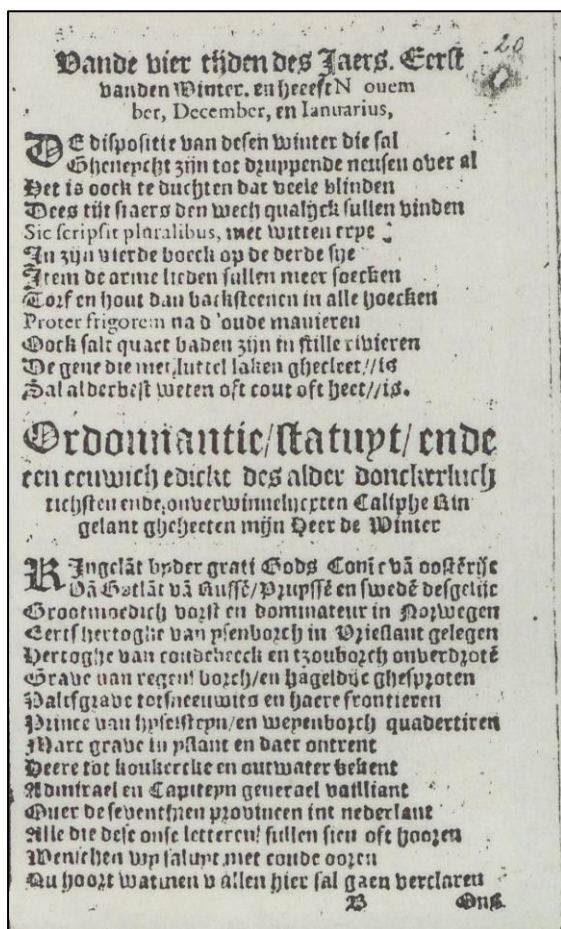 20
Vande vier tijden des Jaers. Eerst
vanden Winter. en heeest N ouem
ber, December, en Ianuarius,
DE dispositie van desen winter die sal
Gheneycht zijn tot druppende neusen over al
Het is oock te duchten dat veele blinden
Dees tijt siaers den wech qualijck sullen vinden
Sic scripsit pluralibus, met witten
In zijn vierde boeck op de derde sye
Item de arme lieden sullen meer soecken
Torf en hout dan backsteenen in alle hoecken
Proter frigorem na d'oude manieren
Oock salt quaet baden zijn in stille rivieren
De gene die met luttel laken ghecleet//is
Sal alderbest weten oft cout oft heet//is.
Ordonnantie/statuyt/ ende
een eeuwich edickt des alder donckerluch
tichsten ende onverwinnelycxten Caliphe Rin
gelant gheheeten mijn Heer de Winter
RIngelāt byder grati Gods Conīc vā oostērijc
Vā Gotlāt vā Russē/Pruyssē en swedē desgelijc
Grootmoedich vorst en dominateur in Norwegen
Eertshertoghe van ysenborch in Vrieslant gelegen
Hertoghe van coudebeeck en tzouborch onverdrotē
Grave van regens vorch/en hageldijc ghesproten
Paltsgrave totsneeuwits en haere frontieren
Prince van hyselsteyn/en weyenborch quadertiren
Marc grave in yslant en daer ontrent
Heere tot koukercke en outwater bekent
Admirael en Capiteyn generael vailliant
Ouer de seventhien provincen int nederlant
Alle die dese onse letteren sullen sien oft hooren
Menschen wy saluyt met coude ooren
Nu hoort watmen v allen hier sal gaen verclaren
B Ons